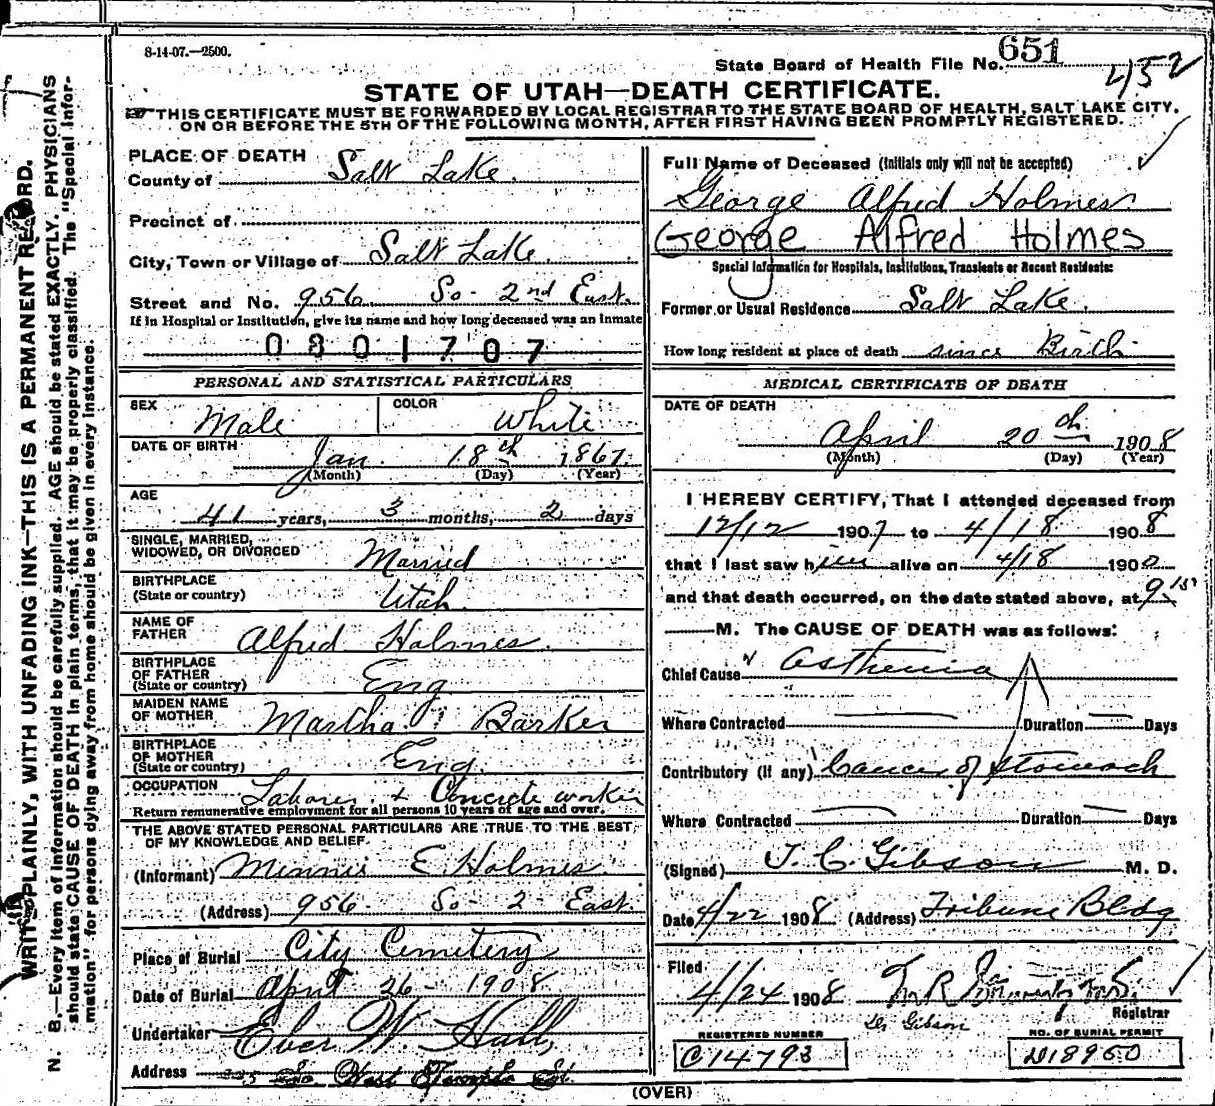 8-14-07.—2500.
State Board of Health File No. 651
452
STATE OF UTAH—DEATH CERTIFICATE.
THIS CERTIFICATE MUST BE FORWARDED BY LOCAL REGISTRAR TO THE STATE BOARD OF HEALTH, SALT LAKE CITY,
ON OR BEFORE THE 5TH OF THE FOLLOWING MONTH, AFTER FIRST HAVING BEEN PROMPTLY REGISTERED.
PLACE OF DEATH
County of Salt Lake.
Precinct of
City, Town or Village of Salt Lake.
Street and No. 956 So. 2nd East.
If in Hospital or Institution, give its name and how long deceased was an inmate
0801707
PERSONAL AND STATISTICAL PARTICULARS
SEX Male COLOR White
DATE OF BIRTH Jan. 18th 1867.
(Month) (Day) (Year)
AGE
41 years, 3 months, 2 days
SINGLE, MARRIED,
WIDOWED, OR DIVORCED Married
BIRTHPLACE
(State or country) Utah
NAME OF
FATHER Alfred Holmes.
BIRTHPLACE
OF FATHER
(State or country) Eng
MAIDEN NAME
OF MOTHER Martha Barker
BIRTHPLACE
OF MOTHER
(State or country) Eng.
OCCUPATION Laborer & Concrete worker
Return remunerative employment for all persons 10 years of age and over.
THE ABOVE STATED PERSONAL PARTICULARS ARE TRUE TO THE BEST
OF MY KNOWLEDGE AND BELIEF.
(Informant) Minnie E. Holmes.
(Address) 956 So. 2 East.
Place of Burial City Cemetery
Date of Burial April 26 - 1908
Undertaker Eber W Hall,
Address So West Temple St.
Full Name of Deceased (Initials only will not be accepted)
George Alfred Holmes.
George Alfred Holmes
Special Information for Hospitals, Institutions, Transients or Recent Residents:
Former or Usual Residence Salt Lake.
How long resident at place of death since Birth
MEDICAL CERTIFICATE OF DEATH
DATE OF DEATH
April 20th 1908
(Month) (Day) (Year)
I HEREBY CERTIFY, That I attended deceased from
12/12 1907 to 4/18 1908
that I last saw him alive on 4/18 1900
and that death occurred, on the date stated above, at 9 15
M. The CAUSE OF DEATH was as follows:
Chief Cause Asthenia
Where Contracted Duration Days
Contributory (if any) Cancer of Stomach
Where Contracted Duration Days
(Signed) J. C. Gibson M. D.
Date 4/22 1908 (Address) Tribune Bldg
Filed
4/24 1908
Registrar
Dr Gibson
REGISTERED NUMBER
C14793
NO. OF BURIAL PERMIT
D18950
(OVER)
WRITE PLAINLY, WITH UNFADING INK—THIS IS A PERMANENT RECORD.
N. B.—Every item of information should be carefully supplied. AGE should be stated EXACTLY. PHYSICIANS
should state CAUSE OF DEATH in plain terms, that it may be properly classified. The "Special Infor-
mation" for persons dying away from home should be given in every instance.